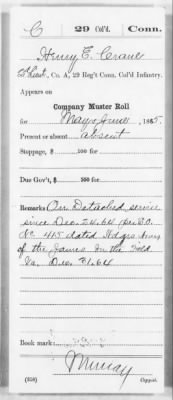 C 29 Col'd. Conn.
Henry E. Crane
2d Lieut., Co. A, 29 Reg't Conn. Col'd Infantry.
Appears on
Company Muster Roll
for May & June, 1865.
Present or absent absent
Stoppage, $ 100 for
Due Gov't, $ 100 for
Remarks: On Detached service
since Dec. 24.64 per S.O.
No 415 dated Hdqrs Army
of the James In the Field
Va. Dec. 21.64
Book mark:
Murray
(358) Copyist.